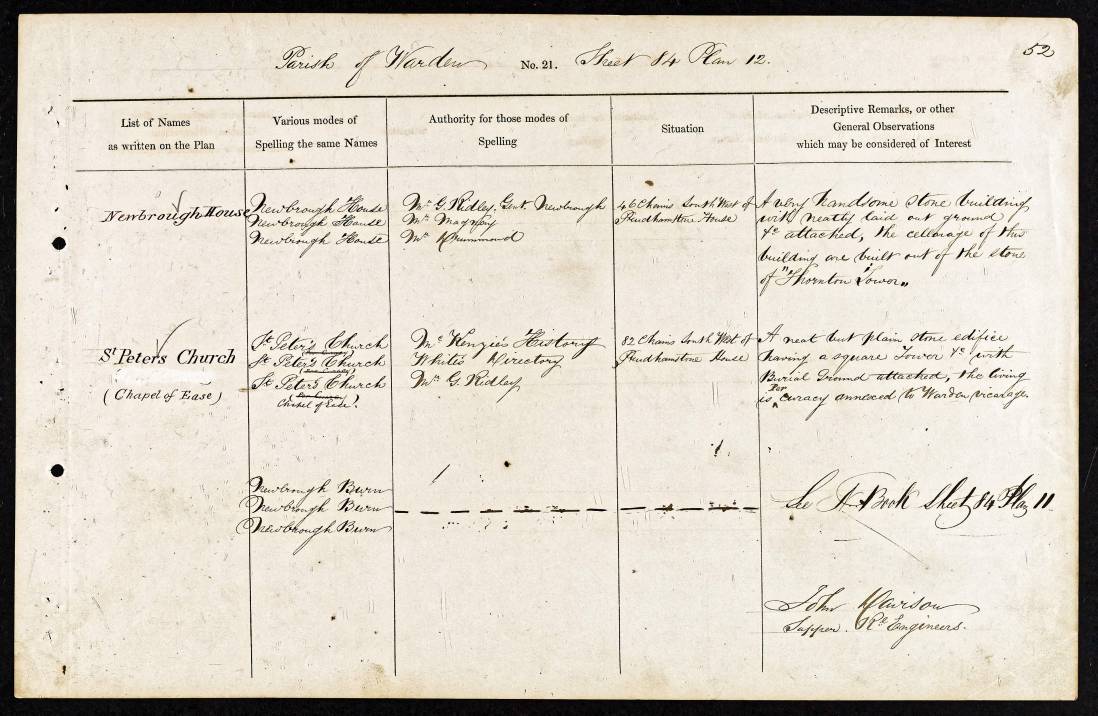 52
Parish of Warden No. 21. Sheet 84 Plan 12.
List of Names
as written on the Plan
Various modes of
Spelling the same Names
Authority for those modes of
Spelling
Situation
Descriptive Remarks, or other
General Observations
which may be considered of Interest
Newbrough House
Newbrough House
Newbrough House
Newbrough House
Mr G. Ridley. Gent. Newbrough
Mr
Mr Drummond
46 Chains South West of
Prudhamstone House
A very handsome stone building
with neatly laid out ground
&c attached, the cellarage of this
building are built out of the stone
of "Thornton Tower"
St Peters Church
(Chapel of Ease)
St Peter's Church
St Peter's Church
St Peter's Church
Chapel of Ease.
Mc Kenzie's History
White's Directory
Mr G. Ridley
82 Chains South West of
Prudhamstone House
A neat but plain stone edifice
having a square Tower &c with
Burial Ground attached, the living
is Per. curacy annexed to Warden vicarage.
Newbrough Burn
Newbrough Burn
Newbrough Burn
See N. Book Sheet 84 Plan 11
John Davison
Sapper. Rl Engineers.